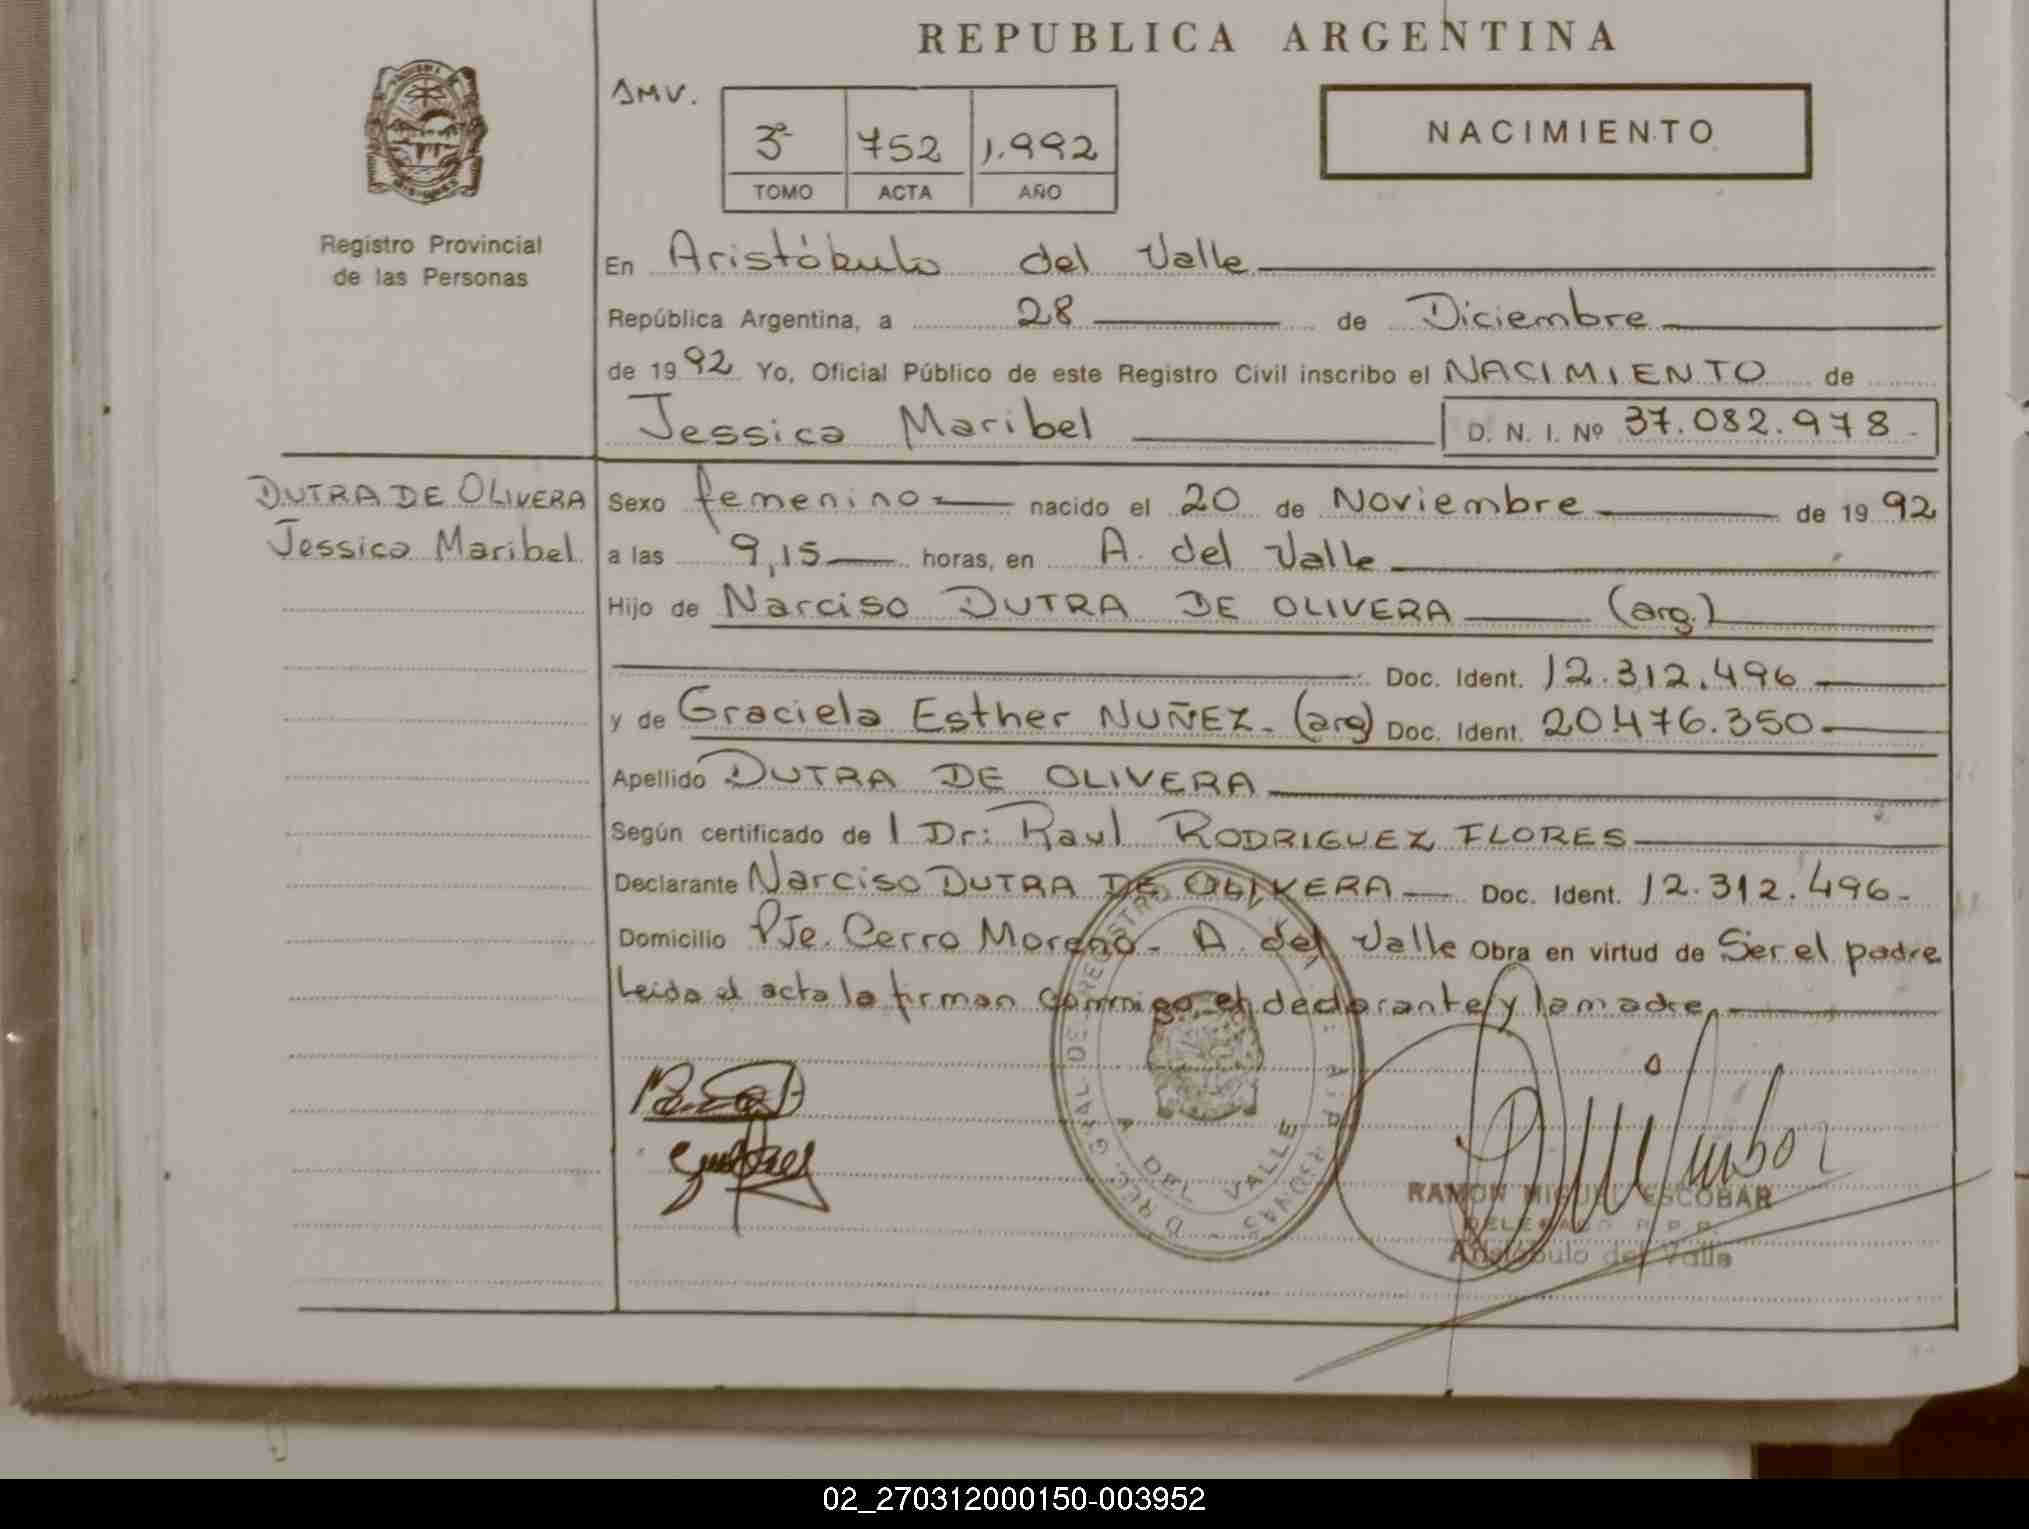 REPUBLICA ARGENTINA
SMV.
3º 752 1.992
TOMO ACTA AÑO
NACIMIENTO
Registro Provincial
de las Personas
En Aristóbulo del Valle
República Argentina, a 28 de Diciembre
de 1992 Yo, Oficial Público de este Registro Civil inscribo el NACIMIENTO de
Jessica Maribel D. N. I. Nº 37.082.978.-
DUTRA DE OLIVERA
Jessica Maribel
Sexo femenino nacido el 20 de Noviembre de 1992
a las 9,15 horas, en A. del Valle
Hijo de Narciso DUTRA DE OLIVERA (arg.)
Doc. Ident. 12.312.496
y de Graciela Esther NUÑEZ.- (arg) Doc. Ident. 20.476.350
Apellido DUTRA DE OLIVERA
Según certificado de l Dr: Raul RODRIGUEZ FLORES
Declarante Narciso DUTRA DE OLIVERA Doc. Ident. 12.312.496-
Domicilio PJe. Cerro Moreno- A. del Valle Obra en virtud de Ser el padre
Leida el acta la firman conmigo el declarante y la madre
A DEL VALLE
RAMON MIGUEL ESCOBAR
DELEGADO R.P.P.
Aristóbulo del Valle
02_270312000150-003952